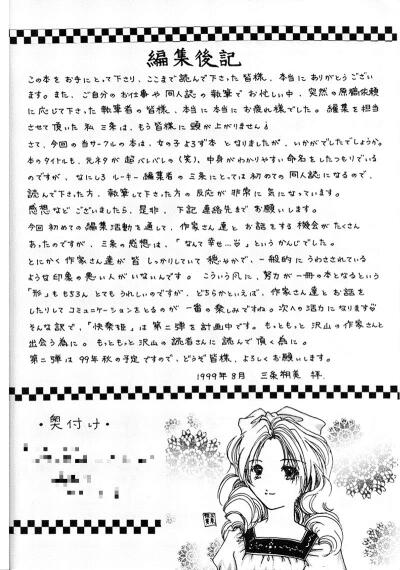 編集後記
この本をお手にとって下さり、ここまで読んで下さった皆様、本当にありがとうござい
ます。また、ご自分のお仕事や同人誌の執筆でお忙しい中、突然の原稿依頼
に応じて下さった執筆者の皆様、本当に本当にお疲れ様でした。編集を担当
させて頂いた私 三条は、もう皆様に頭が上がりません!
さて、今回の当サークルの本は、女の子よろず本となりましたが、いかがでしたでしょうか。
本のタイトルも、元ネタが超バレバレ(笑)、中身がわかりやすい命名をしたつもりでいる
のですが、なにしろルーキー編集者の三条にとっては初めての同人誌になるので、
読んで下さった方、執筆して下さった方の反応が非常に気になっています。
感想などございましたら、是非、下記連絡先までお願いします。
今回初めての編集活動を通して、作家さん達とお話をする機会がたくさん
あったのですが、三条の感想は、「なんて幸せ…」というかんじでした。
とにかく作家さん達が皆しっかりしていて穏やかで、一般的にうわさされている
ような印象の悪い人がいないんです。こういう風に、努力が一冊の本となるという
「形」ももちろんとてもうれしいのですが、どちらかといえば、作家さん達とお話を
したりしてコミュニケーションをとるのが一番の楽しみですね。次への活力になります
そんな訳で、「快楽姫」は第二弾を計画中です。もっともっと沢山の作家さんと
出会う為に。もっともっと沢山の読者さんに読んで頂く為に。
第二弾は99年秋の予定ですので、どうぞ皆様、よろしくお願いします。
1999年8月 三条 拝
・奥付け・